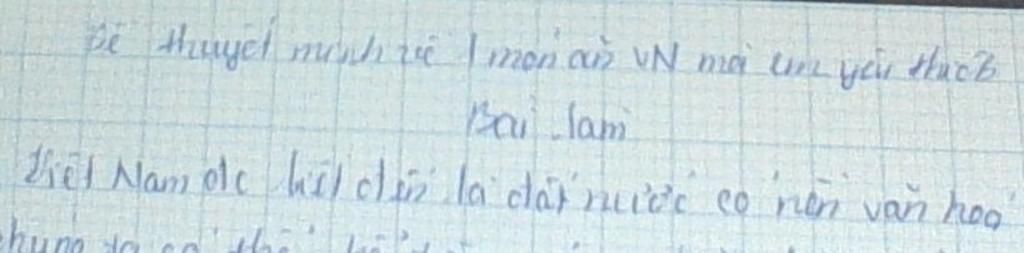 Đề thuyết minh về 1 món ăn VN mà em yêu thích
Bài làm
Việt Nam đc biết đến là đất nước có nền văn hoá
chúng ta có thể